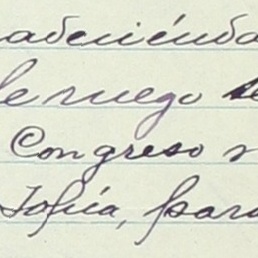 adeciénda
le ruego se
Congreso s
Sofía, para